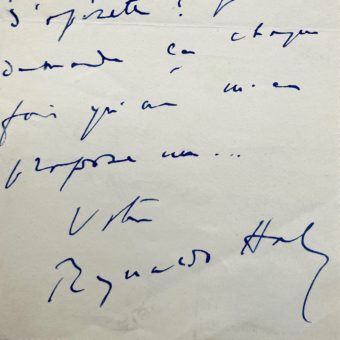 s'opérette ? J
demande ça chaque
fois qu'on m'en
propose un...
Votre
Reynaldo Hahn